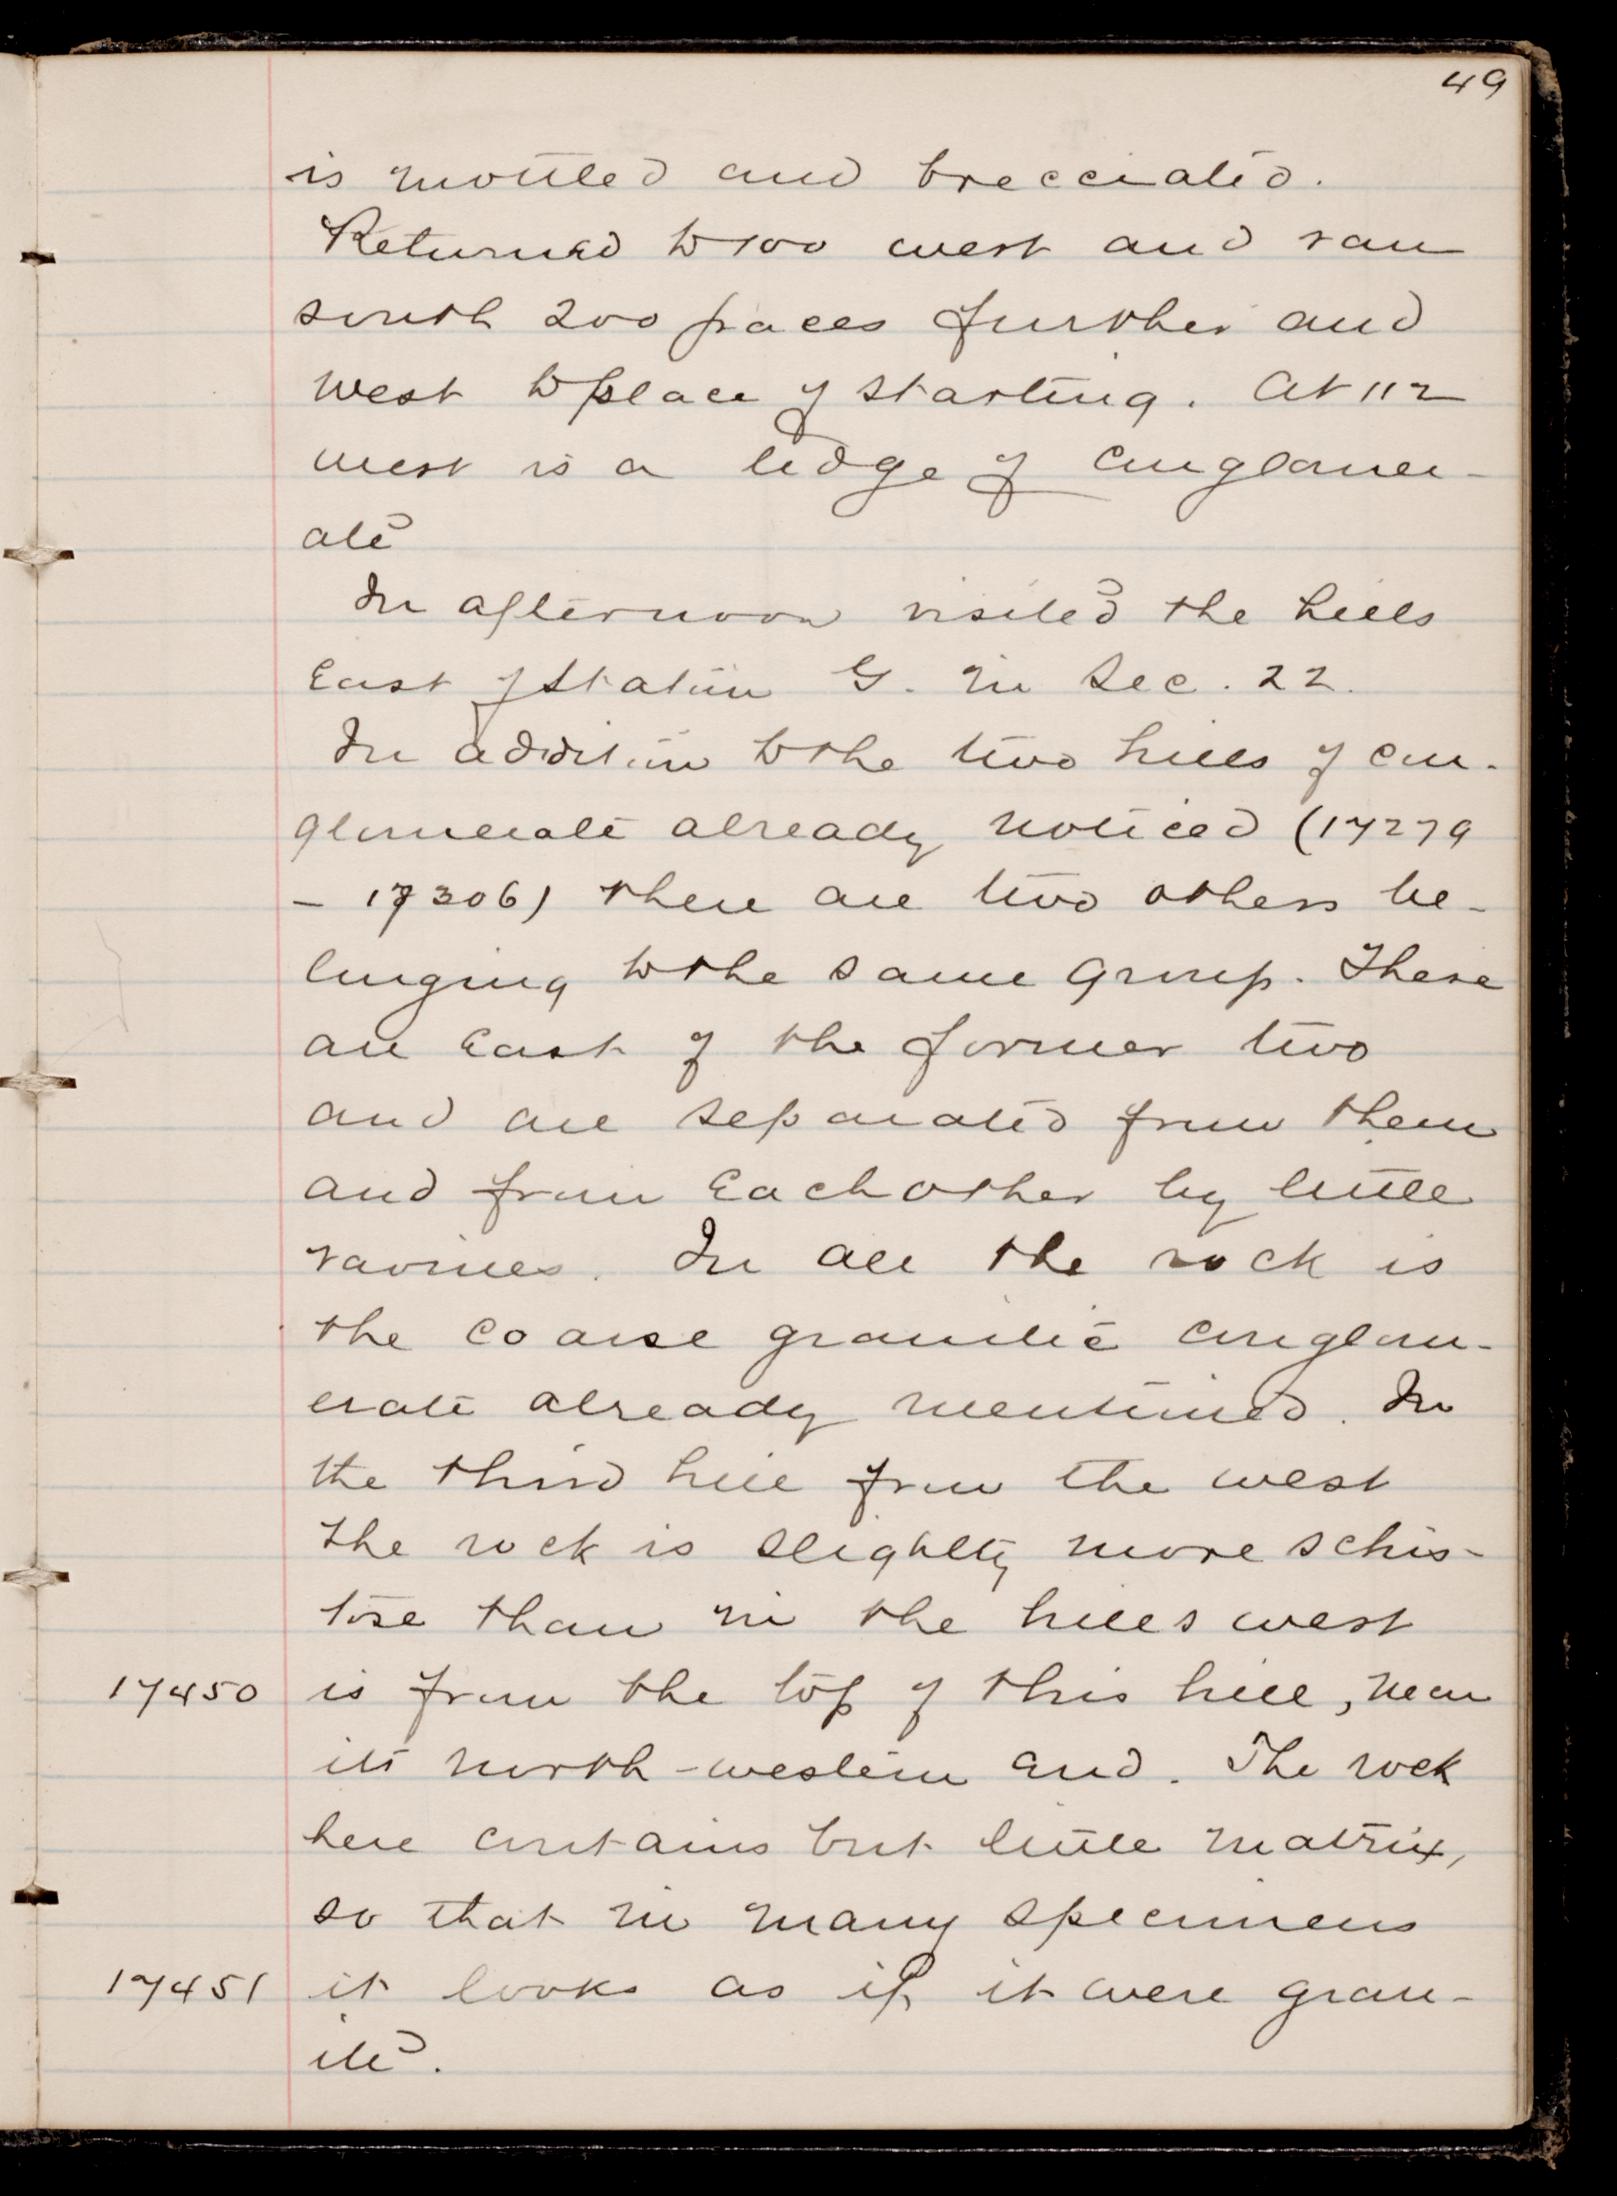 49
is mottled and brecciated.
Returned to 100 west and ran
south 200 paces further and
west to place of starting. At 112
west is a ledge of conglomer-
ate
In afternoon visited the hills
East of Station G. in Sec. 22.
In addition to the two hills of con-
glomerate already noticed (17279
- 17306) there are two others be-
longing to the same group. These
are East of the former two
and are separated from them
and from Each other by little
ravines. In all the rock is
the coarse granitic conglom-
erate already mentioned. In
the third hill from the west
the rock is slightly more schis-
tose than in the hills west
17450 is from the top of this hill, near
its north-western end. The rock
here contains but little matrix,
so that in many specimens
17451 it looks as if it were gran-
ite.